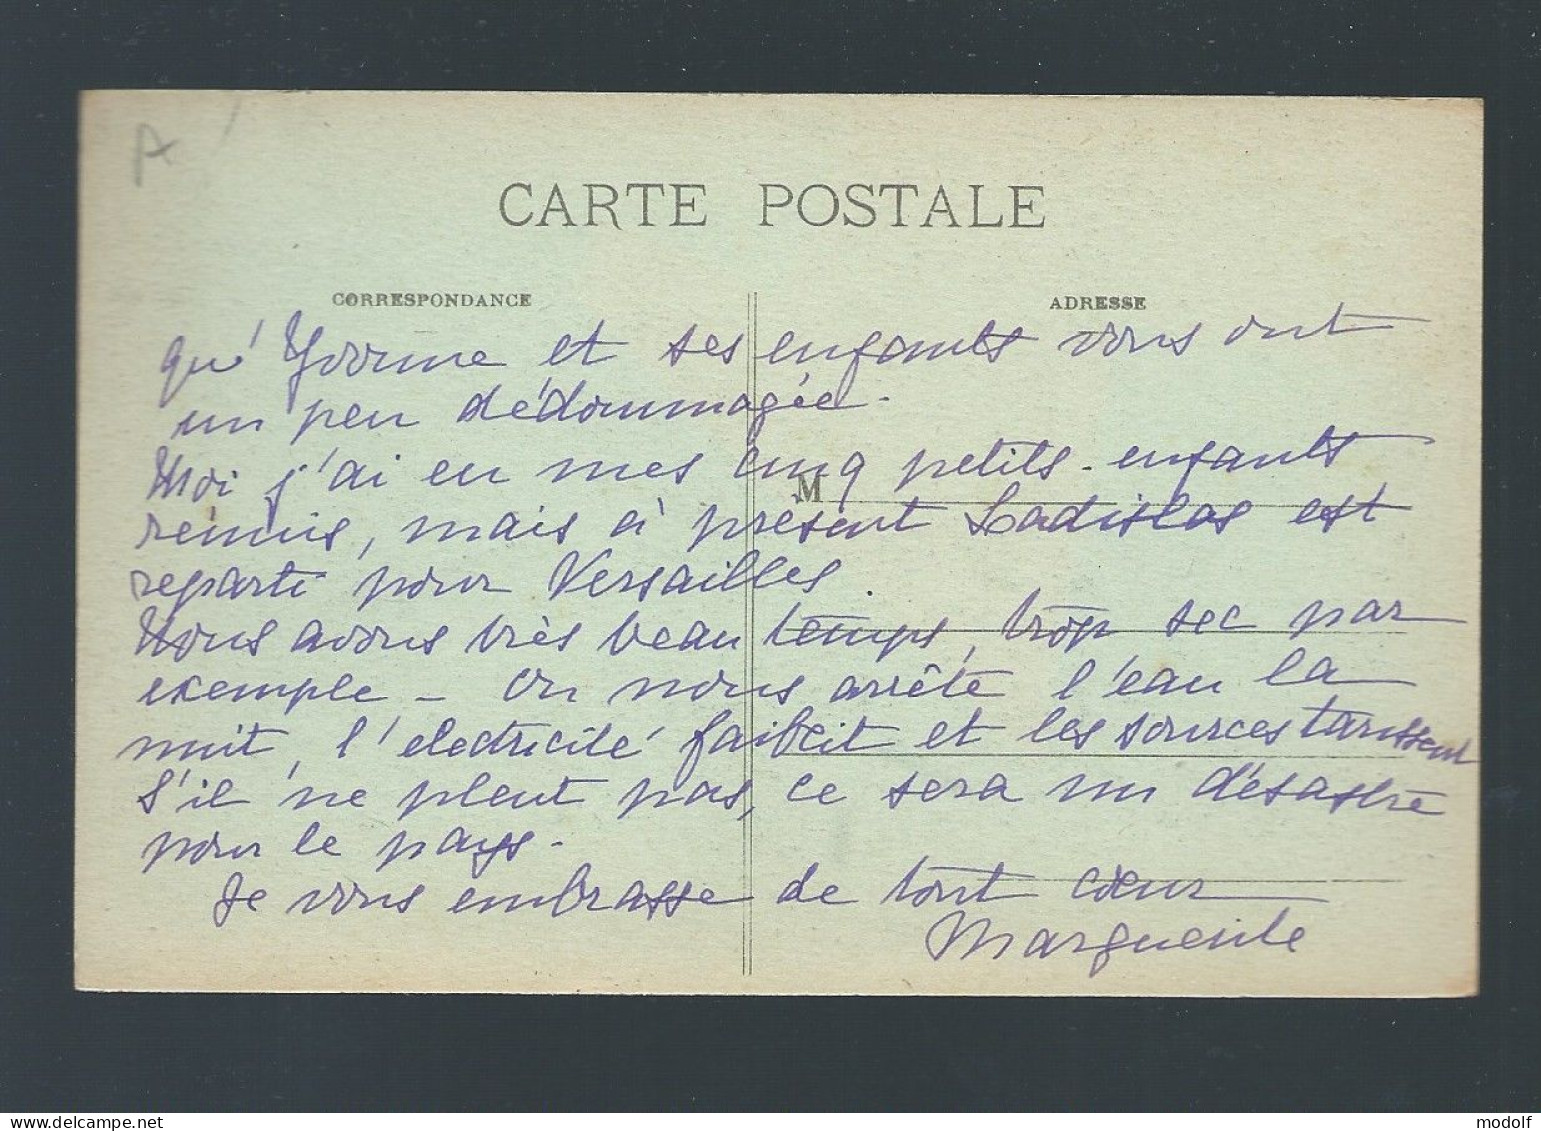 A
CARTE POSTALE
CORRESPONDANCE
ADRESSE
qu'Yvonne et ses enfants vous ont
un peu dédommagée.
Moi j'ai eu mes cinq petits-enfants
M
réunis, mais à présent Ladislas est
reparti pour Versailles.
Nous avons très beau temps, trop sec par
exemple - on nous arrête l'eau la
nuit, l'electricité faiblit et les sources tarissent
S'il ne pleut pas, ce sera un désastre
pour le pays -
Je vous embrasse de tout cœur
Marguerite
modolf